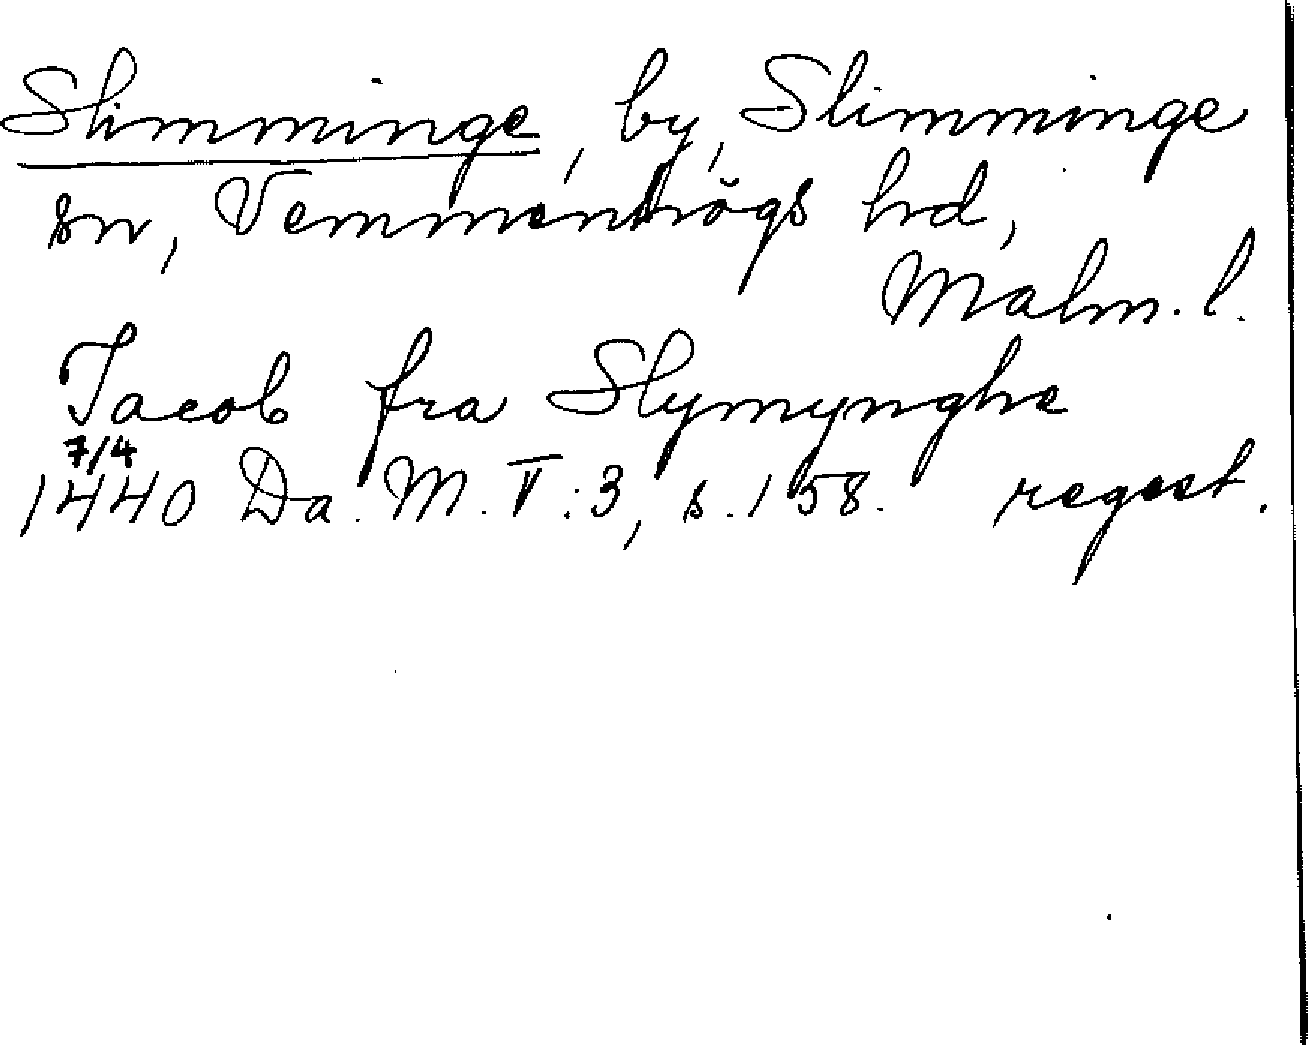 Slimminge, by, Slimminge
sn, Vemmenhögs hd,
Malm. l.
Jacob fra Slymynghe
7/4
1440 Da. M. V:3, s. 158. regest.